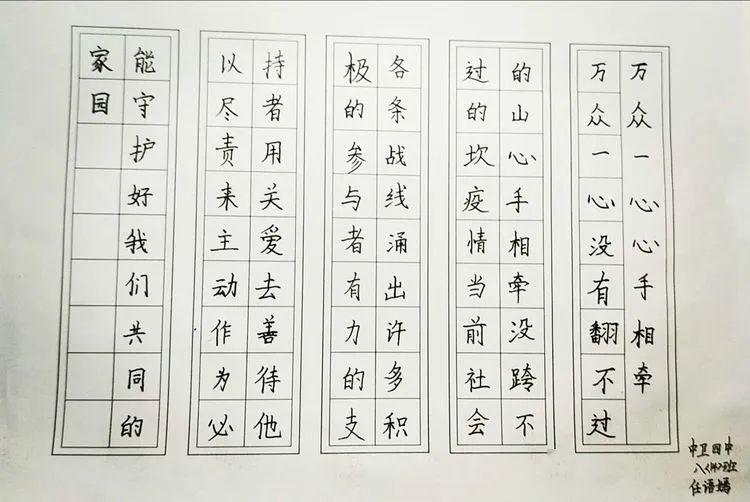 万众一心心手相牵
万众一心没有翻不过
的山心手相牵没跨不
过的坎疫情当前社会
各条战线涌出许多积
极的参与者有力的支
持者用关爱去善待他
以尽责来主动作为必
能守护好我们共同的
家园
中卫四中
八〈14〉班
任语嫣